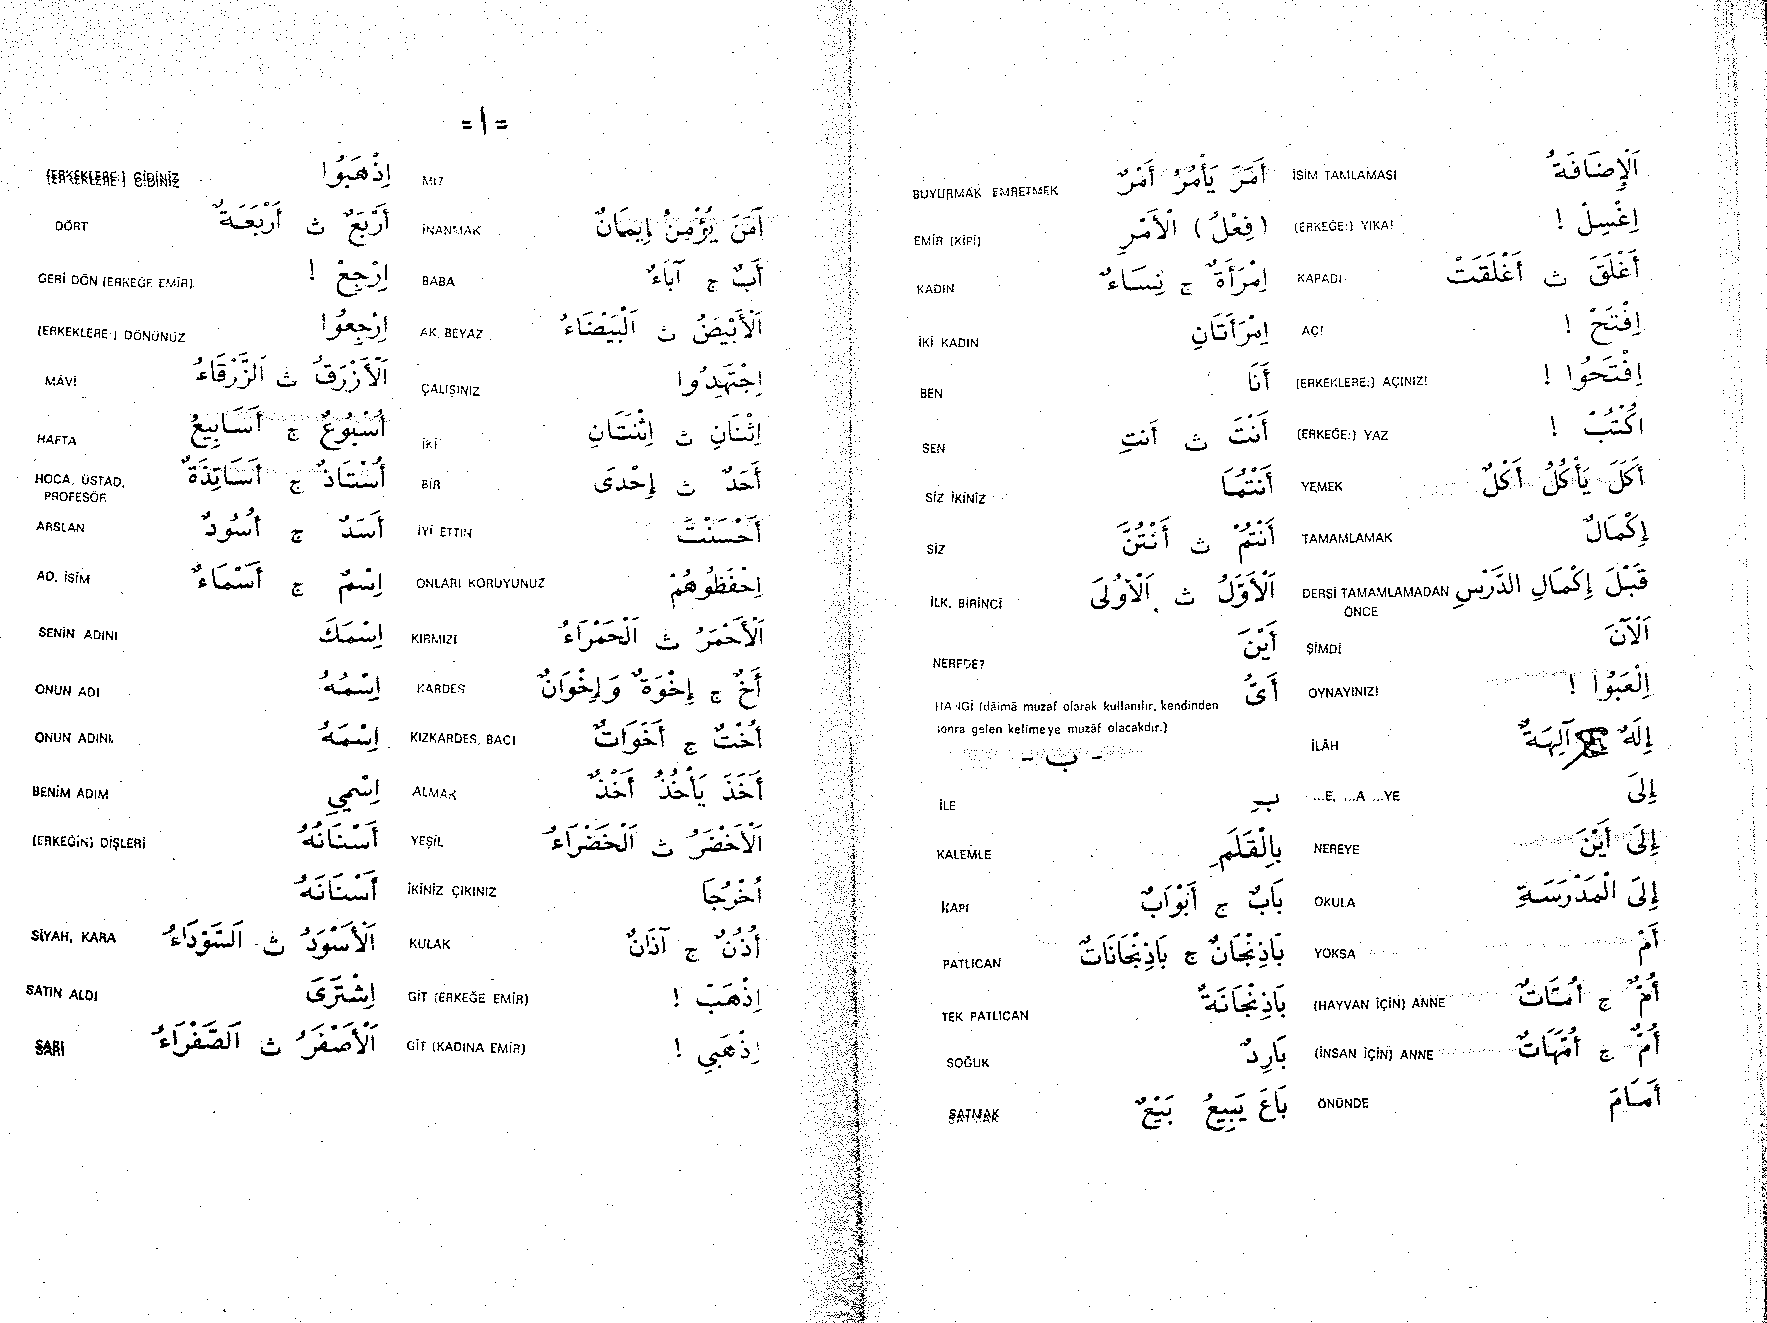 =ا=
MI?
آمَنَ يُؤْمِنُ إِيمَانٌ İNANMAK
أَبٌ ج آبَاءٌ BABA
اَلْأَبْيَضُ ث اَلْبَيْضَاءُ AK, BEYAZ
اِجْتَهِدُوا ÇALIŞINIZ
اِثْنَانِ ث اِثْنَتَانِ İKİ
أَحَدٌ ث إِحْدَى BİR
أَحْسَنْتَ İYİ ETTİN
اِحْفَظُوهُمْ ONLARI KORUYUNUZ
اَلْأَحْمَرُ ث اَلْحَمْرَاءُ KIRMIZI
أَخٌ ج إِخْوَةٌ وَإِخْوَانٌ KARDEŞ
أُخْتٌ ج أَخَوَاتٌ KIZKARDEŞ, BACI
أَخَذَ يَأْخُذُ أَخْذٌ ALMAK
اَلْأَخْضَرُ ث اَلْخَضْرَاءُ YEŞİL
اُخْرُجَا İKİNİZ ÇIKINIZ
أُذُنٌ ج آذَانٌ KULAK
اِذْهَبْ ! GİT (ERKEĞE EMİR)
اِذْهَبِي ! GİT (KADINA EMİR)
اِذْهَبُوا (ERKEKLERE:) GİDİNİZ
أَرْبَعٌ ث أَرْبَعَةٌ DÖRT
اِرْجِعْ ! GERİ DÖN (ERKEĞE EMİR)
اِرْجِعُوا (ERKEKLERE:) DÖNÜNÜZ
اَلْأَزْرَقُ ث اَلزَّرْقَاءُ MÂVİ
أُسْبُوعٌ ج أَسَابِيعُ HAFTA
أُسْتَاذٌ ج أَسَاتِذَةٌ HOCA, ÜSTAD,
PROFESÖR
أَسَدٌ ج أُسُودٌ ARSLAN
اِسْمٌ ج أَسْمَاءٌ AD, İSİM
اِسْمَكَ SENİN ADINI
اِسْمُهُ ONUN ADI
اِسْمَهُ ONUN ADINI
اِسْمِي BENİM ADIM
أَسْنَانُهُ (ERKEĞİN) DİŞLERİ
أَسْنَانَهُ
اَلْأَسْوَدُ ث اَلسَّوْدَاءُ SİYAH, KARA
اِشْتَرَى SATIN ALDI
اَلْأَصْفَرُ ث اَلصَّفْرَاءُ SARI
اَلْإِضَافَةُ İSİM TAMLAMASI
اِغْسِلْ ! (ERKEĞE:) YIKA!
أَغْلَقَ ث أَغْلَقَتْ KAPADI
اِفْتَحْ ! AÇ!
اِفْتَحُوا ! (ERKEKLERE:) AÇINIZ!
اُكْتُبْ ! (ERKEĞE:) YAZ
أَكَلَ يَأْكُلُ أَكْلٌ YEMEK
إِكْمَالٌ TAMAMLAMAK
قَبْلَ إِكْمَالِ الدَّرْسِ DERSİ TAMAMLAMADAN
ÖNCE
اَلْآنَ ŞİMDİ
اِلْعَبُوا ! OYNAYINIZ!
إِلَهٌ ج آلِهَةٌ İLÂH
إِلَى ...E, ...A ...YE
إِلَى أَيْنَ NEREYE
إِلَى الْمَدْرَسَةِ OKULA
أَمْ YOKSA
أُمٌّ ج أُمَّاتٌ (HAYVAN İÇİN) ANNE
أُمٌّ ج أُمَّهَاتٌ (İNSAN İÇİN) ANNE
أَمَامَ ÖNÜNDE
أَمَرَ يَأْمُرُ أَمْرٌ BUYURMAK EMRETMEK
(فِعْلُ) الْأَمْرِ EMİR (KİPİ)
اِمْرَأَةٌ ج نِسَاءٌ KADIN
اِمْرَأَتَانِ İKİ KADIN
أَنَا BEN
أَنْتَ ث أَنْتِ SEN
أَنْتُمَا SİZ İKİNİZ
أَنْتُمْ ث أَنْتُنَّ SİZ
اَلْأَوَّلُ ث اَلْأُولَى İLK, BİRİNCİ
أَيْنَ NEREDE?
أَيُّ HANGİ (dâimâ muzâf olarak kullanılır, kendinden
sonra gelen kelimeye muzâf olacakdır.)
- ب -
بِـ İLE
بِالْقَلَمِ KALEMLE
بَابٌ ج أَبْوَابٌ KAPI
بَاذِنْجَانٌ ج بَاذِنْجَانَاتٌ PATLICAN
بَاذِنْجَانَةٌ TEK PATLICAN
بَارِدٌ SOĞUK
بَاعَ يَبِيعُ بَيْعٌ SATMAK